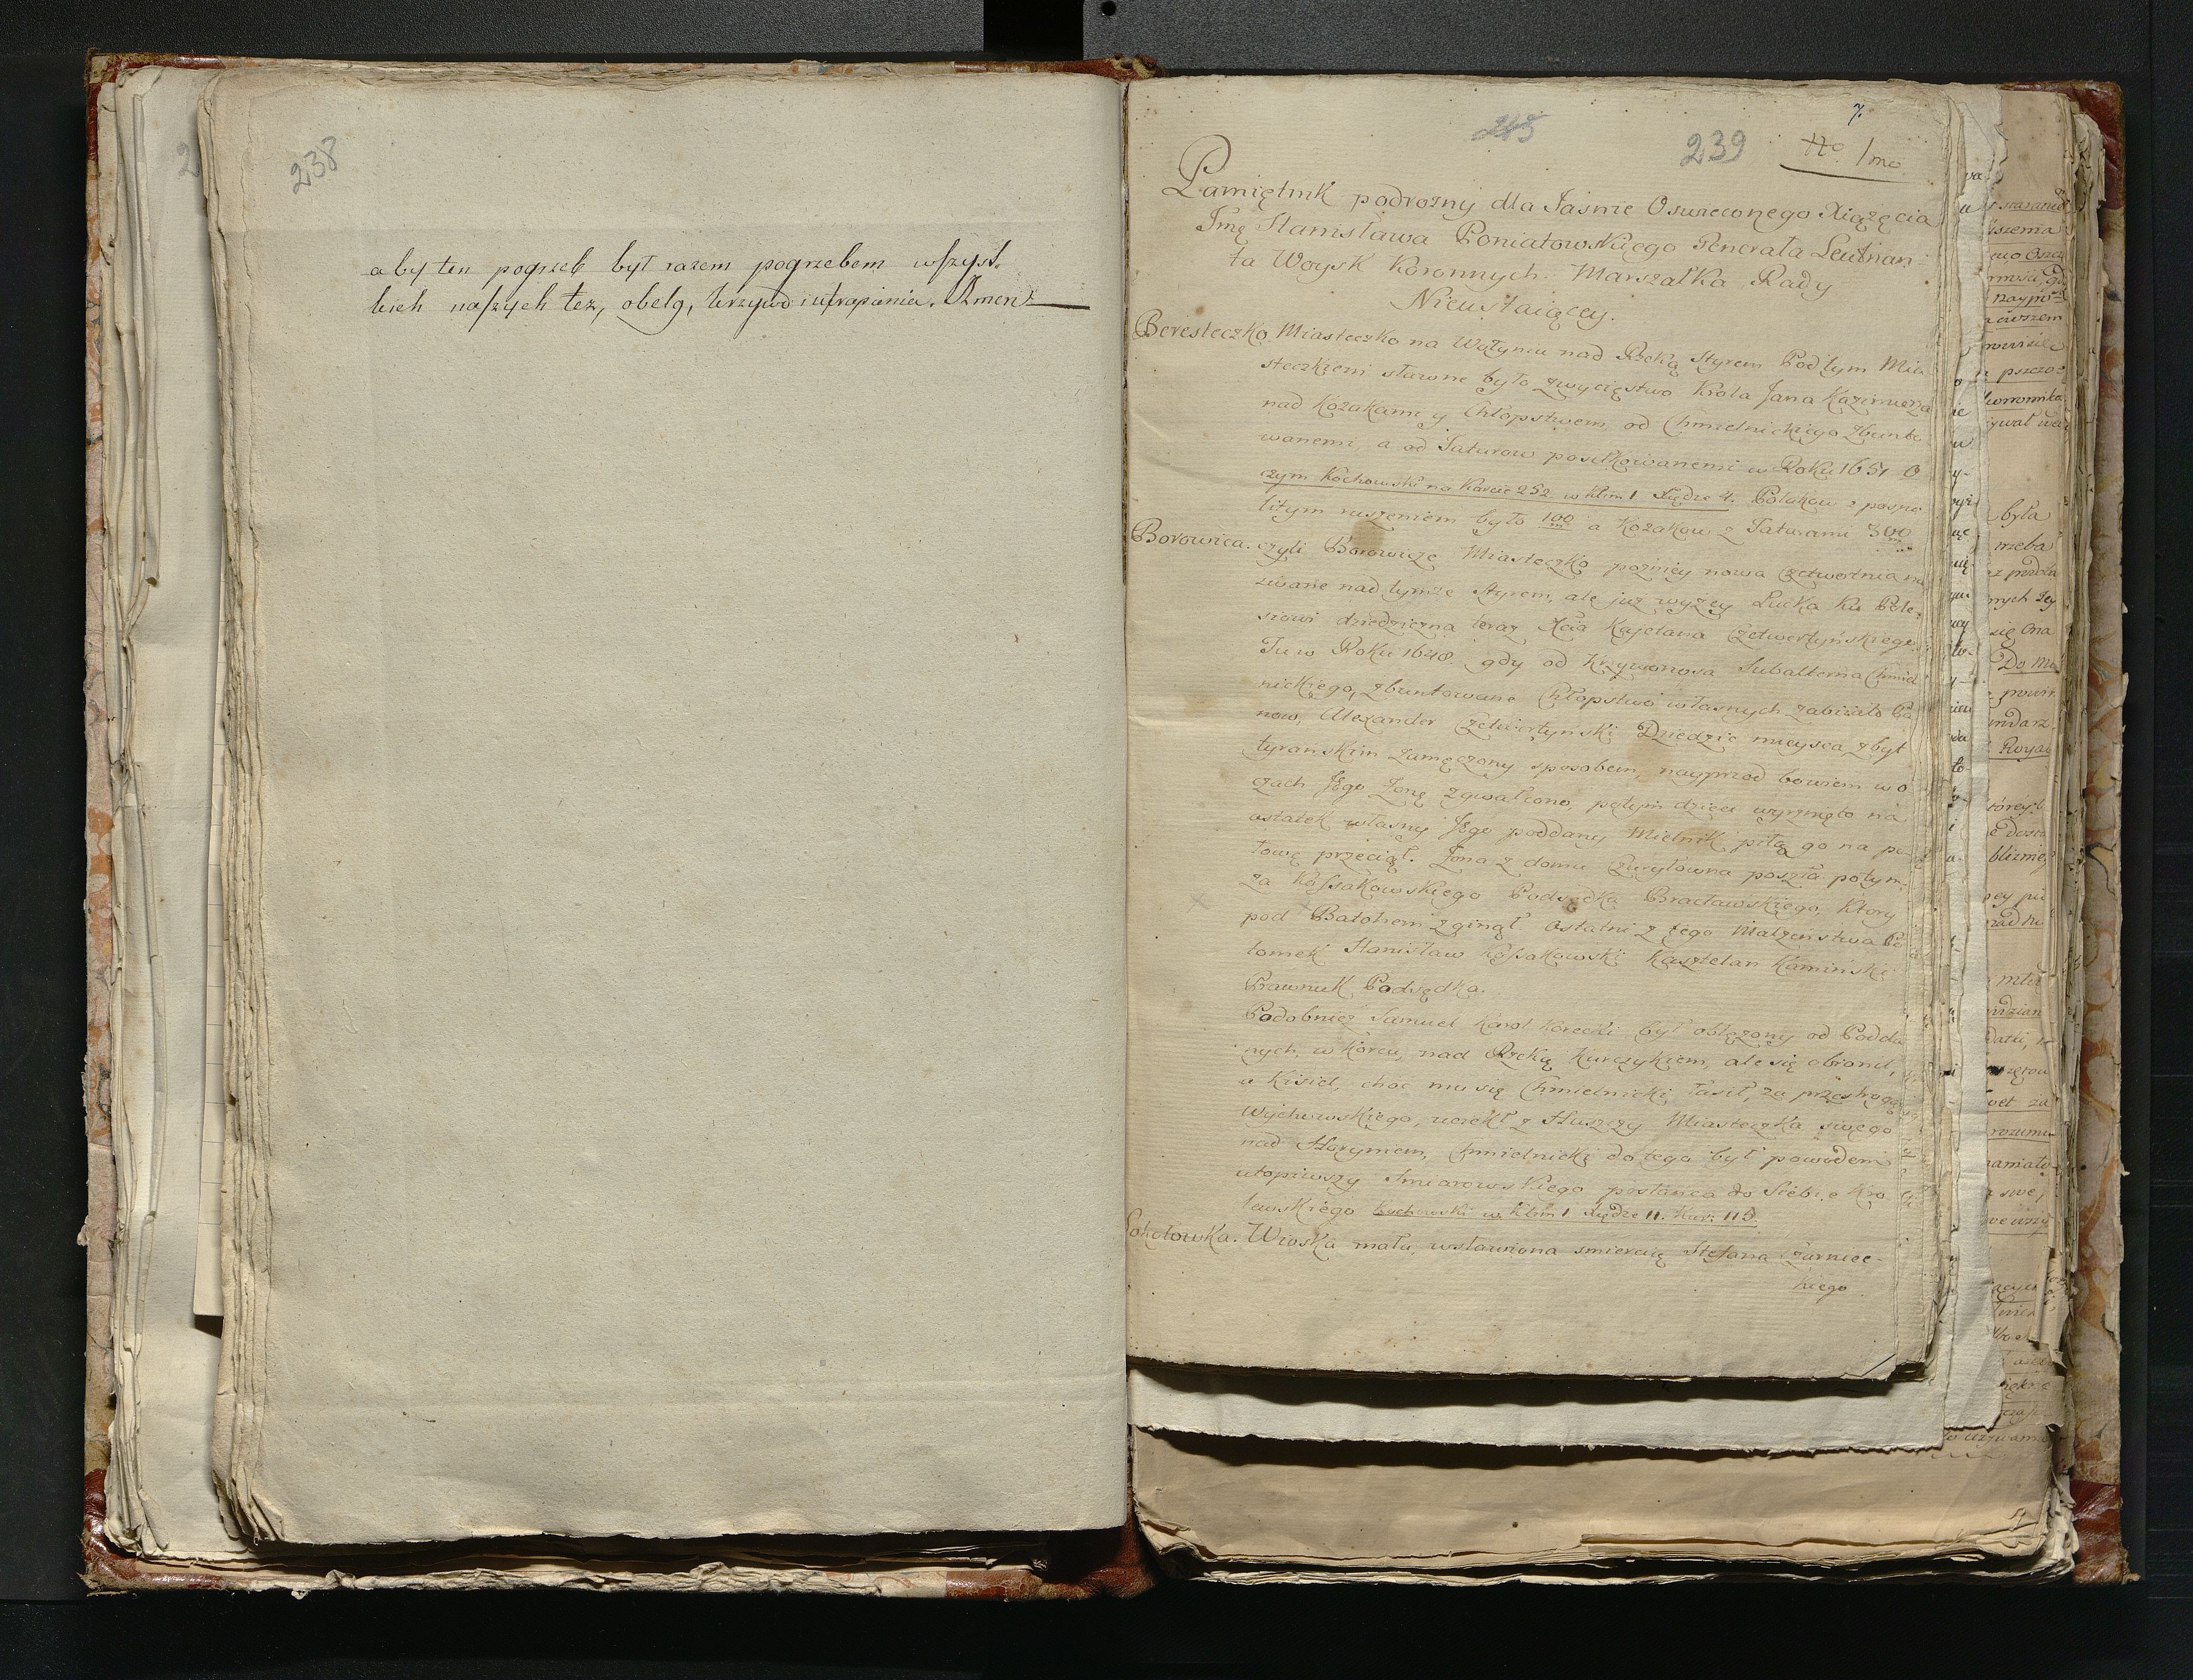 238
aby ten pogrzeb był razem pogrzebem wszyst.
kich naszych łez, obelg, krzywd i utrapienia. Amen
7.
245
239
No. 1mo
Pamiętnik podrozny dla Jasnie Oswieconego Xiążęcia
Jmę Stanisława Poniatowskiego Generała Leutnan
ta Woysk Koronnych. Marszałka Rady
Nieustaiącey.
Beresteczko. Miasteczko na Wołyniu nad Rzeką Styrem Pod tym Mia
steczkiem sławne było zwycięstwo Krola Jana Kazimierza
nad Kozakami y Chłopstwem, od Chmielnickiego zbunto
wanemi, a od Tatarow posiłkowanemi w Roku 1651 O
czym Kochowski na Karcie 252 w Klim 1 Xiędze 4. Polakow z pospo
litym ruszeniem było 100 m a Kozakow z Tatarami 300 m
Borowica. czyli Borowicze Miasteczko pozniey nowa Czetwertnia na
zwane nad tymże Styrem, ale juz wyżey Łucka ku Pole-
siowi dziedziczna teraz Xcia Kajetana Czetwertyńskiego
Tu w Roku 1648. gdy od Krzywonosa Subalterna Chmiel
nickiego, zbuntowane Chłopstwo własnych zabiiało Pa
now, Alexander Czetwertyński Dziedzic mieysca zbyt
tyrańskim zamęczony sposobem, nayprzod bowiem w o
czach Jego Żonę zgwałcono, potym dzieci wyrznięto na
ostatek własny Jego poddany Mielnik piłą go na po-
łowę przeciął. Żona z domu poszła potym
za Kossakowskiego Podsędka Bracławskiego, Ktory
pod Batohem zginął ostatni z tego Małzenstwa Po
tomek Stanisław Kossakowski Kasztelan Kaminski
Prawnuk Podsędka.
Podobniez Samuel Karol Korecki był oblężony od Podda
nych, w Korcu, nad Rzeką Kurczykiem, ale się obronił,
a Kisiel, choc mu się Chmielnicki łasił, za przestrogą
Wyhowskiego, uciekł z Huszczy Miasteczka swego
nad Horyniem, Chmielnicki do tego był powodem
utopiwszy Smiarowskiego posłańca do Siebie Kro
lewskiego Kochowski w Klim 1 Xiędze 11. Kar: 115.
Sokołowka. Wioska mała, wsławiona smiercią Stefana Czarniec-
kiego